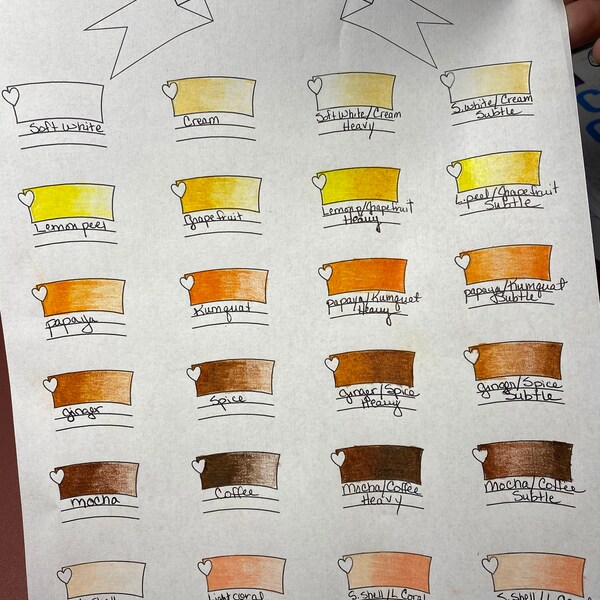 Soft White
Cream
Soft White/Cream
Heavy
S. White/Cream
Subtle
Lemon peel
Grapefruit
Lemon p/Grapefruit
Heavy
L. peel/Grapefruit
Subtle
papaya
Kumquat
papaya/Kumquat
Heavy
papaya/Kumquat
Subtle
ginger
Spice
Ginger/Spice
Heavy
Ginger/Spice
Subtle
mocha
Coffee
Mocha/Coffee
Heavy
Mocha/Coffee
Subtle
Shell
Light Coral
S. Shell/L. Coral
S. Shell/L. Coral